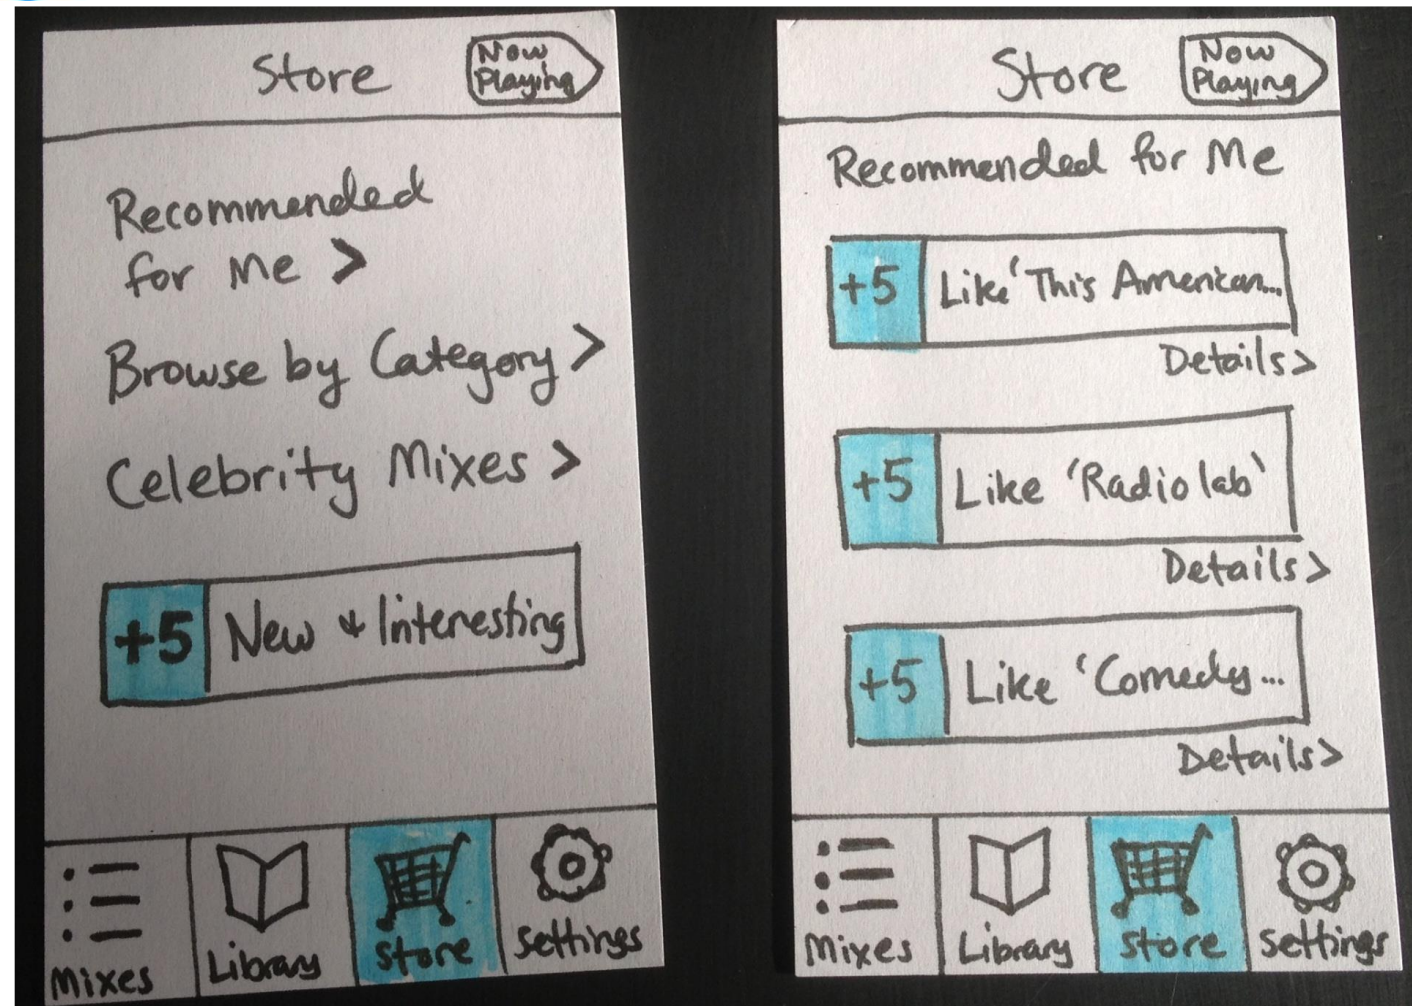 Store
Now
Playing
Recommended
for Me >
Browse by Category >
Celebrity Mixes >
+5 New & Interesting
Mixes
Library
Store
Settings
Store
Now
Playing
Recommended for Me
+5 Like 'This American...
Details >
+5 Like 'Radiolab'
Details >
+5 Like 'Comedy ...
Details >
Mixes
Library
Store
Settings